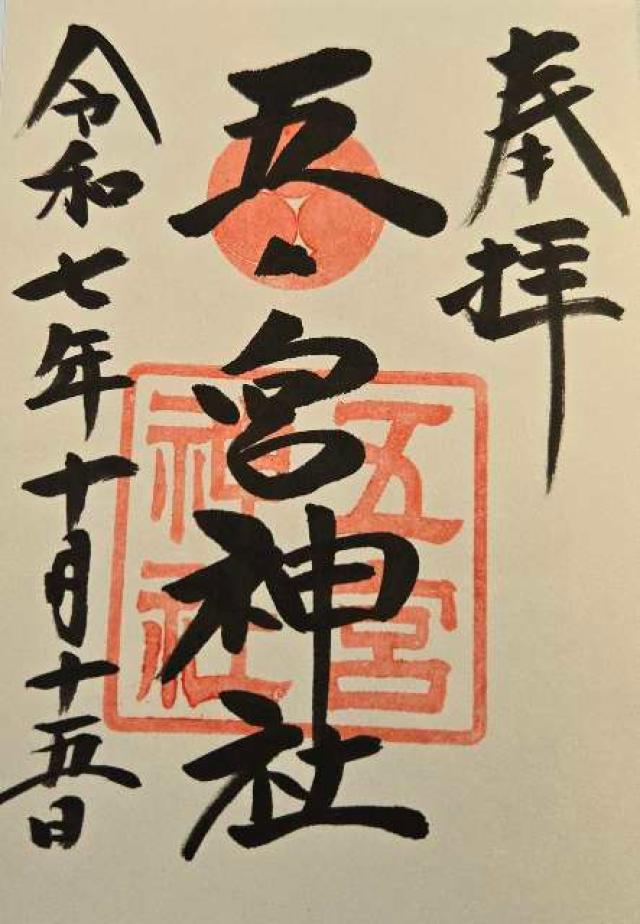 奉拝
五ノ宮神社
五宮
神社
令和七年十月十五日